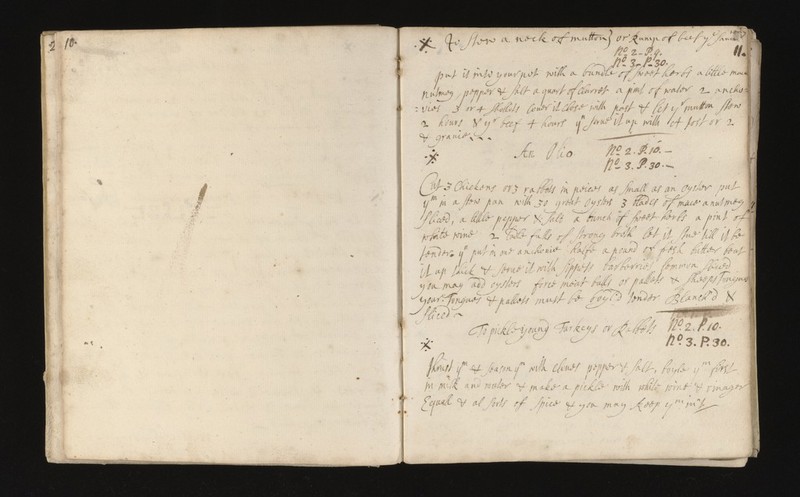 2 10.
11.
To stew a neck of mutton or Rump of beef ye same
No 2 - P. 9.
No - 3 - P - 30.
put it into your pot with a bundle of sweet herbs a little
nutmeg, pepper & salt a quart of Claret a pint of water 2 ancho
=vies 3 or 4 shallots Cover it close with past & let ye mutton stew
2 hours & ye beef 4 hours yn serve it up with
& gravie
An Olio No 2. P. 10. -
No 3. P. 30. -
Cut 3 Chickens or 3 rabbets in peices as small as an oyster put
ym in a stew pan with 30 great oysters 3 blades of mace a nutmeg
sliced, a little pepper & salt a bunch of sweet herbs a pint of
white wine 2 ladle fulls of strong broth let it stue till it be
tender yn put in an anchovie halfe a pound of fresh butter beat
it up thick & serve it with sippets barberries lemmon sliced
you may add oysters forced meat balls or pallets & sheeps Tongues
your Tongues & pallets must be boyl'd tender Blanch'd &
sliced
To pickle young Turkeys or Rabbets No 2. P. 10.
No 3. P. 30.
ym & season ym with cloves pepper & salt, boyle ym first
in milk and water & make a pickle with white wine & vinager
Equal & al sorts of spice & you may keep ym in't